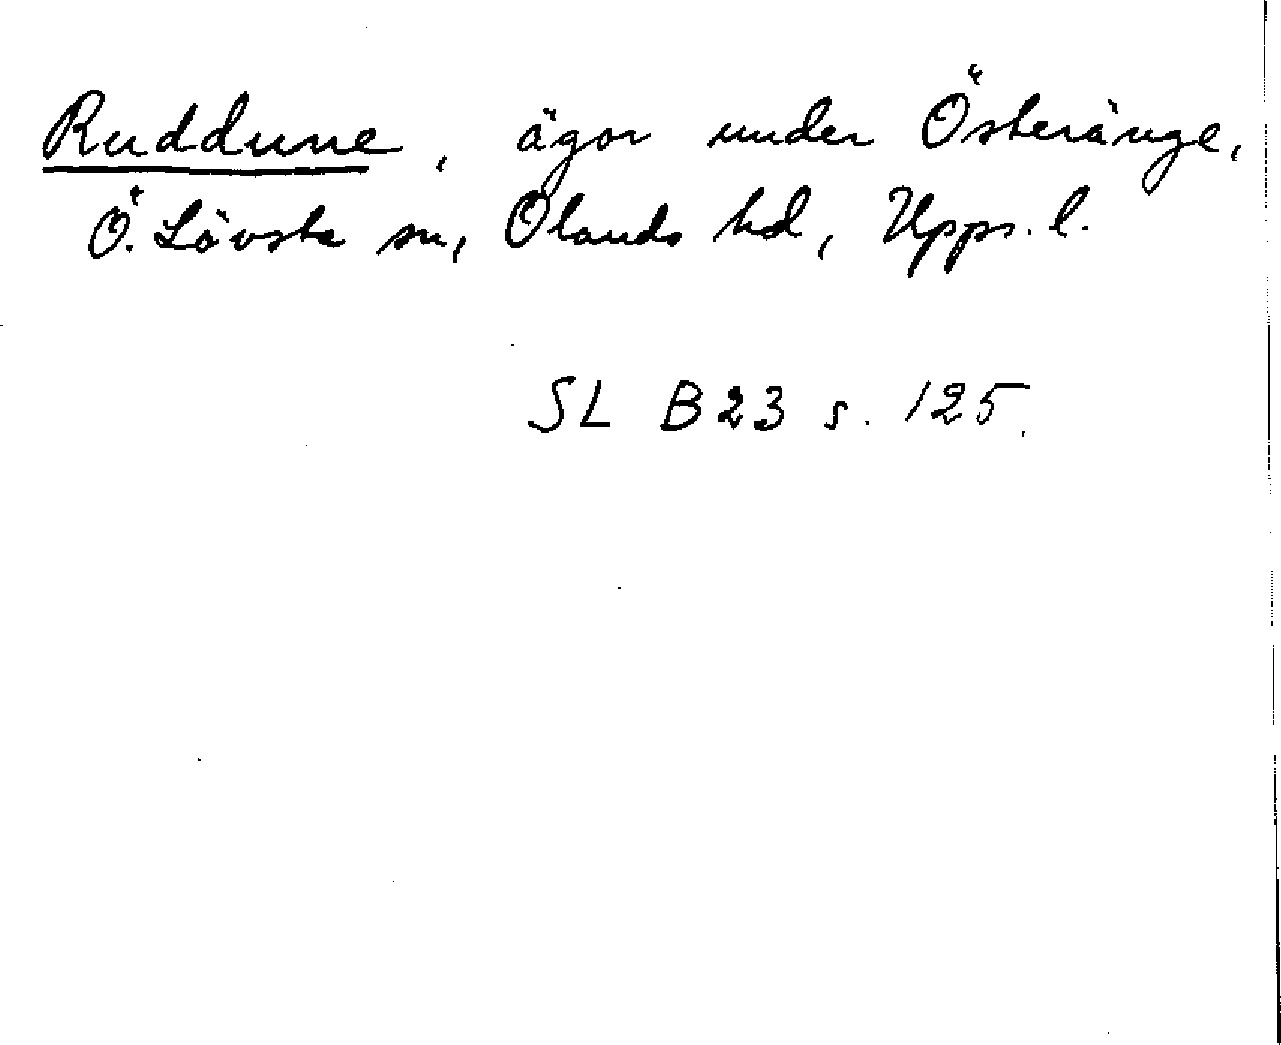 Ruddune, ägor under Österänge,
Ö. Lövsta sn, Olands hd, Upps. l.
SL B23 s. 125.